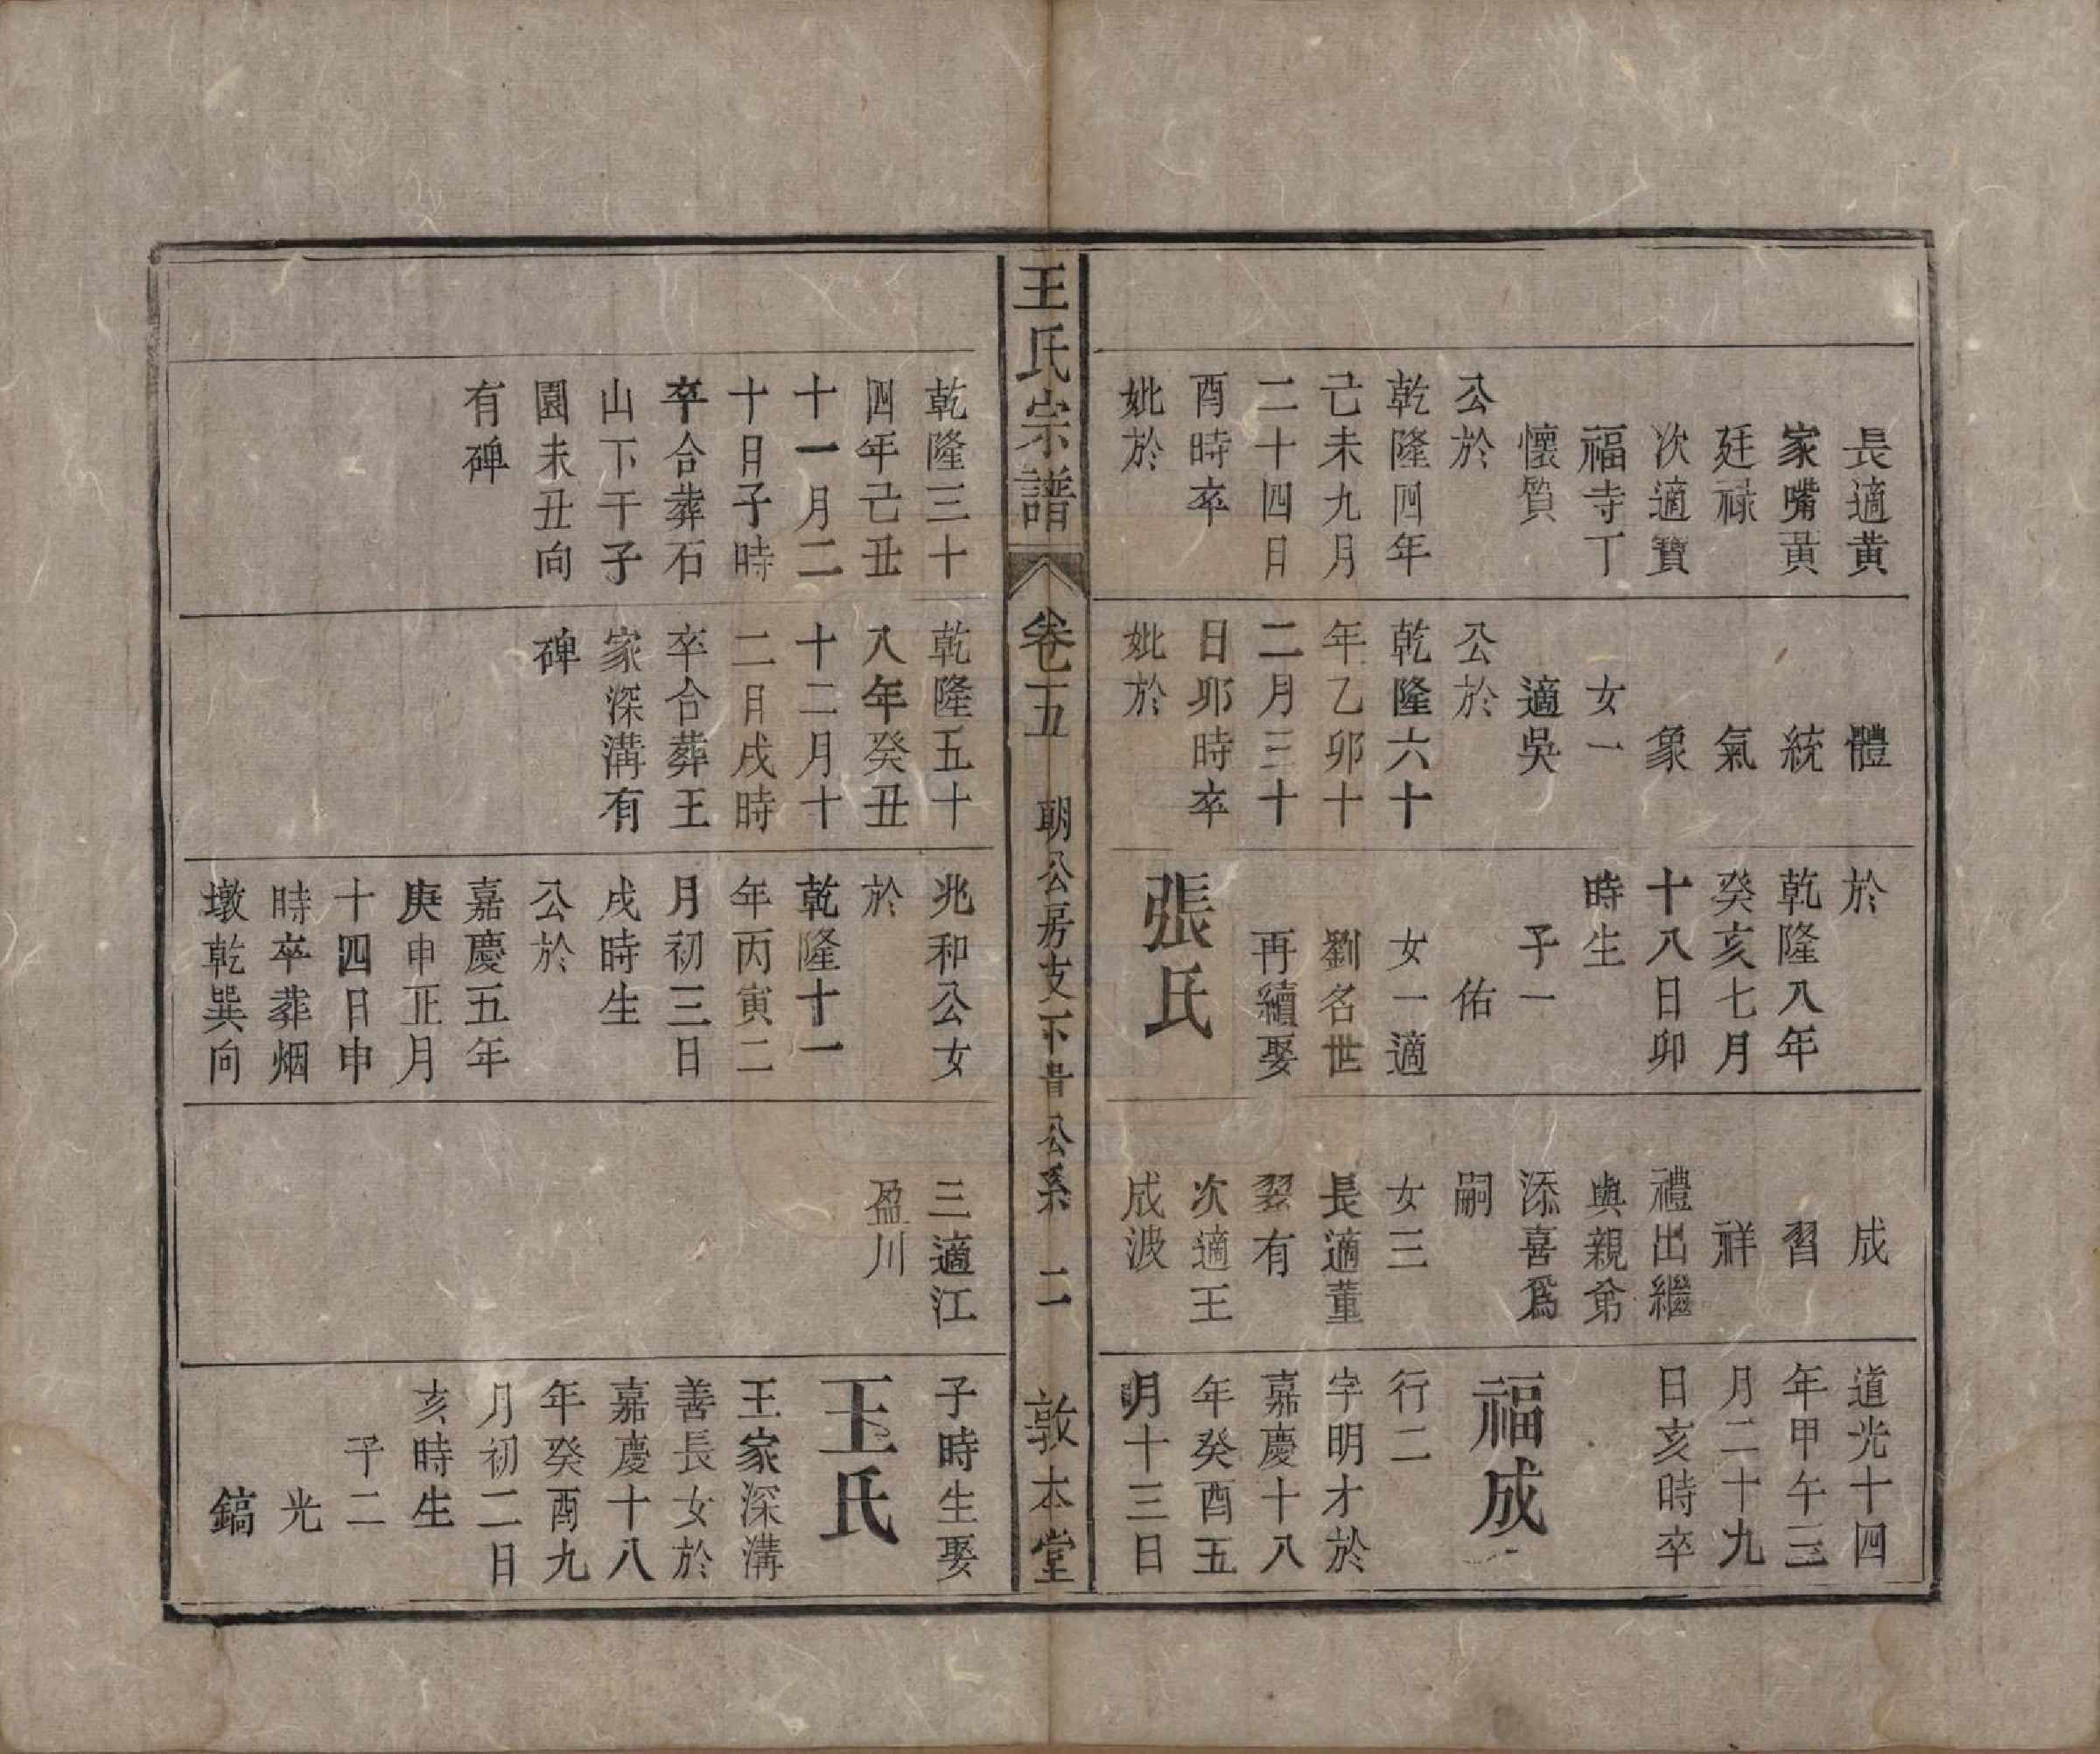 長適黄
家嘴黃
廷祿
次適寶
福寺丁
懷質
公於
乾隆四年
己未九月
二十四日
酉時卒
妣於
體
統
氣
象
女一
適吳
公於
乾隆六十
年乙卯十
二月三十
日卯時卒
妣於
於
乾隆八年
癸亥七月
十八日卯
時生
子一
佑
女一適
劉名世
再續娶
張氏
成
習
祥
禮出繼
與親弟
添喜爲
嗣
女三
長適董
習有
次適王
成波
道光十四
年甲午三
月二十九
日亥時卒
福成
行二
字明才於
嘉慶十八
年癸酉五
月十三日
王氏宗譜
卷五
朝公房支下 公系
二
敦本堂
乾隆三十
四年己丑
十一月二
十日子時
卒合葬石
山下干子
園未丑向
有碑
乾隆五十
八年癸丑
十二月十
二月戌時
卒合葬王
家深溝有
碑
兆和公女
於
乾隆十一
年丙寅二
月初三日
戌時生
公於
嘉慶五年
庚申正月
十四日申
時卒葬烟
墩乾巽向
三適江
盈川
子時生娶
王氏
王家深溝
善長女於
嘉慶十八
年癸酉九
月初二日
亥時生
子二
光
鎬